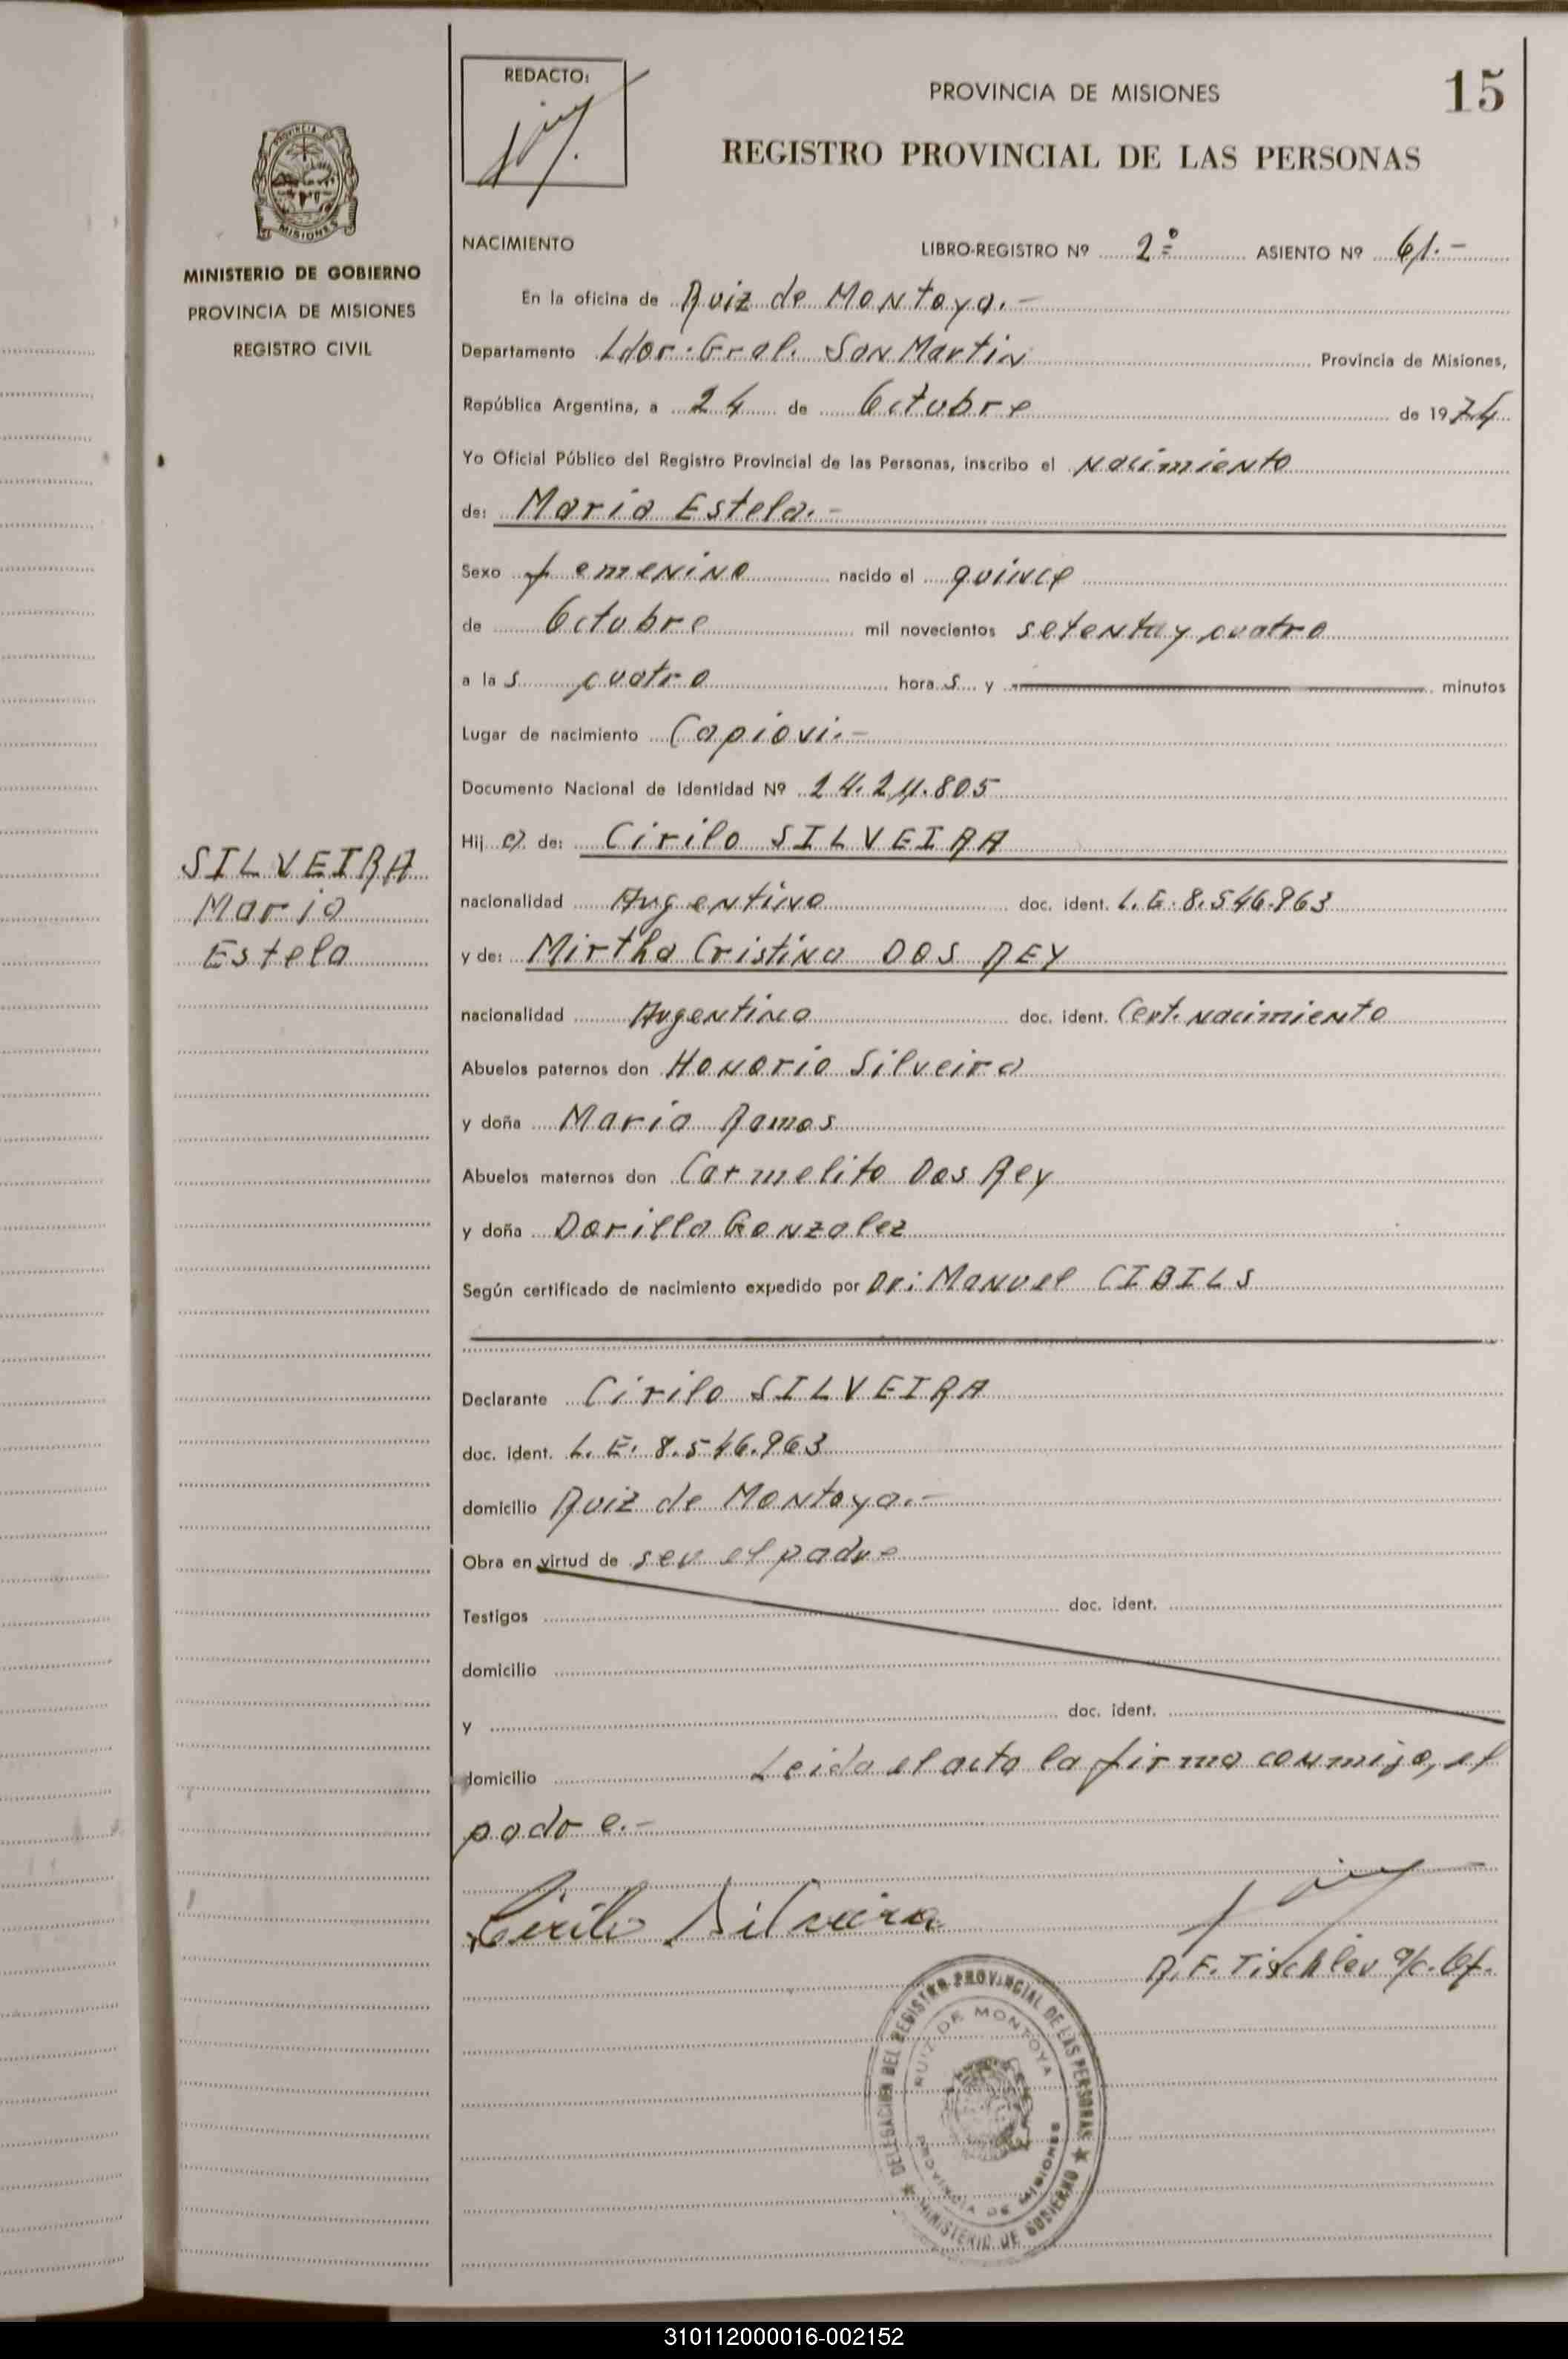 REDACTO:
PROVINCIA DE MISIONES
15
REGISTRO PROVINCIAL DE LAS PERSONAS
PROVINCIA DE
MISIONES
MINISTERIO DE GOBIERNO
PROVINCIA DE MISIONES
REGISTRO CIVIL
SILVEIRA
Maria
Estela
NACIMIENTO LIBRO-REGISTRO Nº 2º ASIENTO Nº 61.-
En la oficina de Ruiz de Montoya.-
Departamento Ldor. Gral. San Martin Provincia de Misiones,
República Argentina, a 24 de Octubre de 1974
Yo Oficial Público del Registro Provincial de las Personas, inscribo el nacimiento
de: Maria Estela.-
Sexo femenino nacido el quince
de Octubre mil novecientos setenta y cuatro
a la s cuatro hora s y minutos
Lugar de nacimiento Capiovi.-
Documento Nacional de Identidad Nº 24.24.805
Hij a de: Cirilo SILVEIRA
nacionalidad Argentina doc. ident. L.E. 8.546.963
y de: Mirtha Cristina DOS REY
nacionalidad Argentina doc. ident. Cert. nacimiento
Abuelos paternos don Honorio Silveira
y doña Maria Ramos
Abuelos maternos don Carmelito Dos Rey
y doña Dorilla Gonzalez
Según certificado de nacimiento expedido por Dr: Manuel CIBILS
Declarante Cirilo SILVEIRA
doc. ident. L.E. 8.546.963
domicilio Ruiz de Montoya.-
Obra en virtud de ser el padre
Testigos doc. ident.
domicilio
y doc. ident.
domicilio Leida el acta la firma conmigo, el
padre.-
Cirilo Silveira
R.F. Tischler a/c. Of.
DELEGACION DEL REGISTRO PROVINCIAL DE LAS PERSONAS
RUIZ DE MONTOYA
PROVINCIA DE MISIONES
MINISTERIO DE GOBIERNO
310112000016-002152